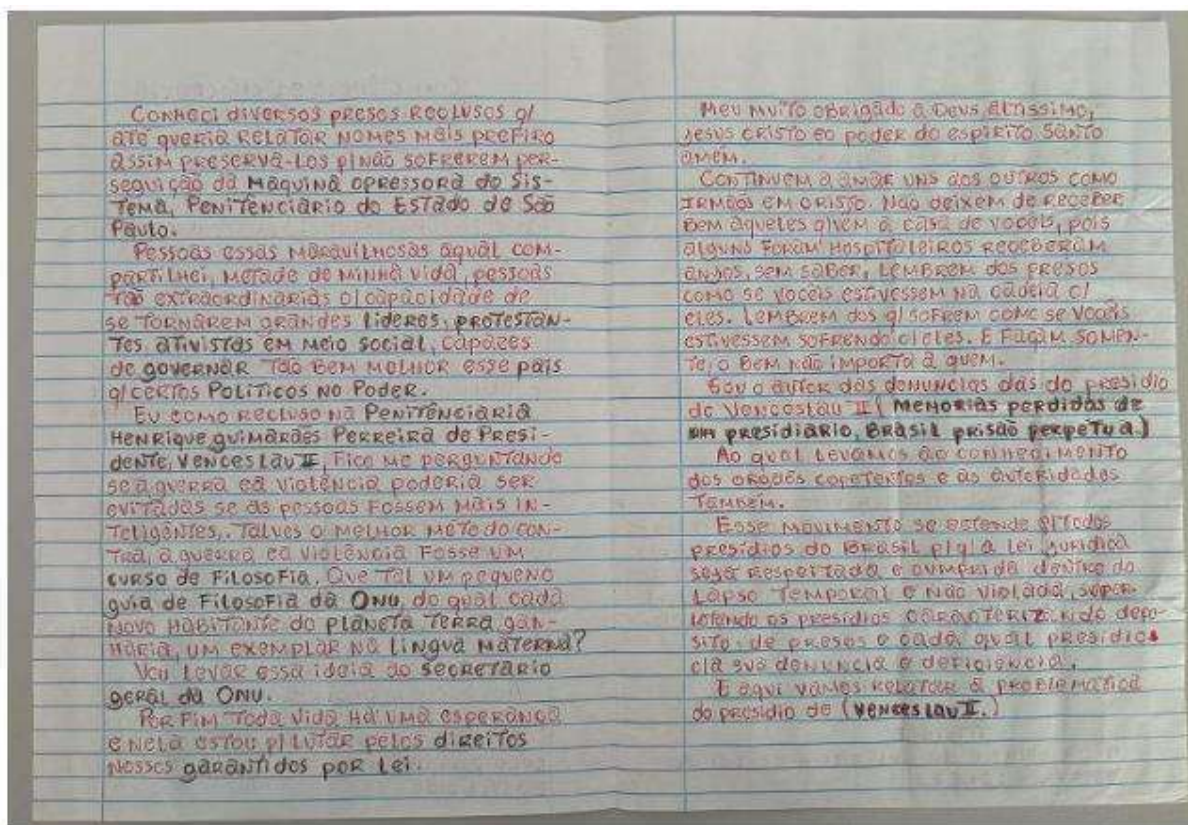 Conheci diversos presos reclusos q/
até queria relatar nomes mais prefiro
assim preservá-los p/ não sofrerem per-
seguição da Maquina opressora do Sis-
tema, Penitenciário do Estado de São
Paulo.
Pessoas essas maravilhosas aqual com-
partilhei, metade de minha vida, pessoas
tão extraordinárias c/ capacidade de
se tornarem grandes lideres, protestan-
tes, ativistas em meio social, capazes
de governar tão bem melhor esse país
q/ certos Políticos no Poder.
Eu como recluso na Penitênciária
Henrique guimarães Perreira de Presi-
dente, Venceslau II, Fico me perguntando
se a guerra ea violência poderia ser
evitadas se as pessoas fossem mais in-
teligêntes,. Talves o melhor método con-
tra, a guerra ea violência Fosse um
curso de Filosofia. Que tal um pequeno
guia de Filosofia da ONU, do qual cada
novo habitante do planeta Terra gan-
haria, um exemplar na lingua materna?
Vou levar essa ideia ao secretário
geral da ONU.
Por Fim Toda vida há uma esperança
e nela estou p/ lutar pelos direitos
nossos garantidos por lei.
Meu muito obrigado a Deus Altissimo,
Jesus cristo eo poder do espirito Santo
amém.
Continuem a amar uns aos outros como
Irmãos em cristo. Não deixem de receber
bem aqueles q/ vem a casa de vocêis, pois
alguns foram Hospitaleiros receberam
anjos, sem saber, lembrem dos presos
como se vocêis estivessem na cadeia c/
eles. Lembrem dos q/ sofrem como se vocêis
estivessem sofrendo c/ eles. E Façam somen-
te, o Bem não importa a quem.
Sou o autor das denuncias das do presidio
de Venceslau II (Memorias perdidas de
um presidiário, Brasil prisão perpetua.)
Ao qual levamos ao conhecimento
dos orgãos copetentes e as autoridades
também.
Esse movimento se estende p/ todos
presídios do Brasil p/ q/ a lei juridica
seja respeitada e cumprida dentro do
lapso temporal e não violada, super-
lotando os presidios caracterizando depo-
sito, de presos e cada qual presidio
c/a sua denuncia e deficiência.
E aqui vamos relatar a problematica
do presidio de (Venceslau II.)